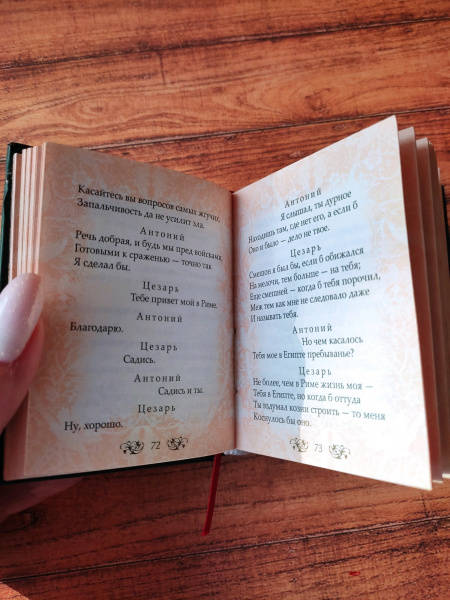 Касайтесь вы вопросов самых жгучих,
Запальчивость да не усилит зла.
Антоний
Речь добрая, и будь мы пред войсками,
Готовыми к сраженью — точно так
Я сделал бы.
Цезарь
Тебе привет мой в Риме.
Антоний
Благодарю.
Цезарь
Садись.
Антоний
Садись и ты.
Цезарь
Ну, хорошо.
72
Антоний
Я слышал, ты дурное
Находишь там, где нет его, а если б
Оно и было — дело не твое.
Цезарь
Смешон я был бы, если б обижался
На мелочи, тем больше — на тебя;
Еще смешней — когда б тебя порочил,
Меж тем как мне не следовало даже
И называть тебя.
Антоний
Но чем касалось
Тебя мое в Египте пребыванье?
Цезарь
Не более, чем в Риме жизнь моя —
Тебя в Египте, но когда б оттуда
Ты вздумал козни строить — то меня
Коснулось бы оно.
73